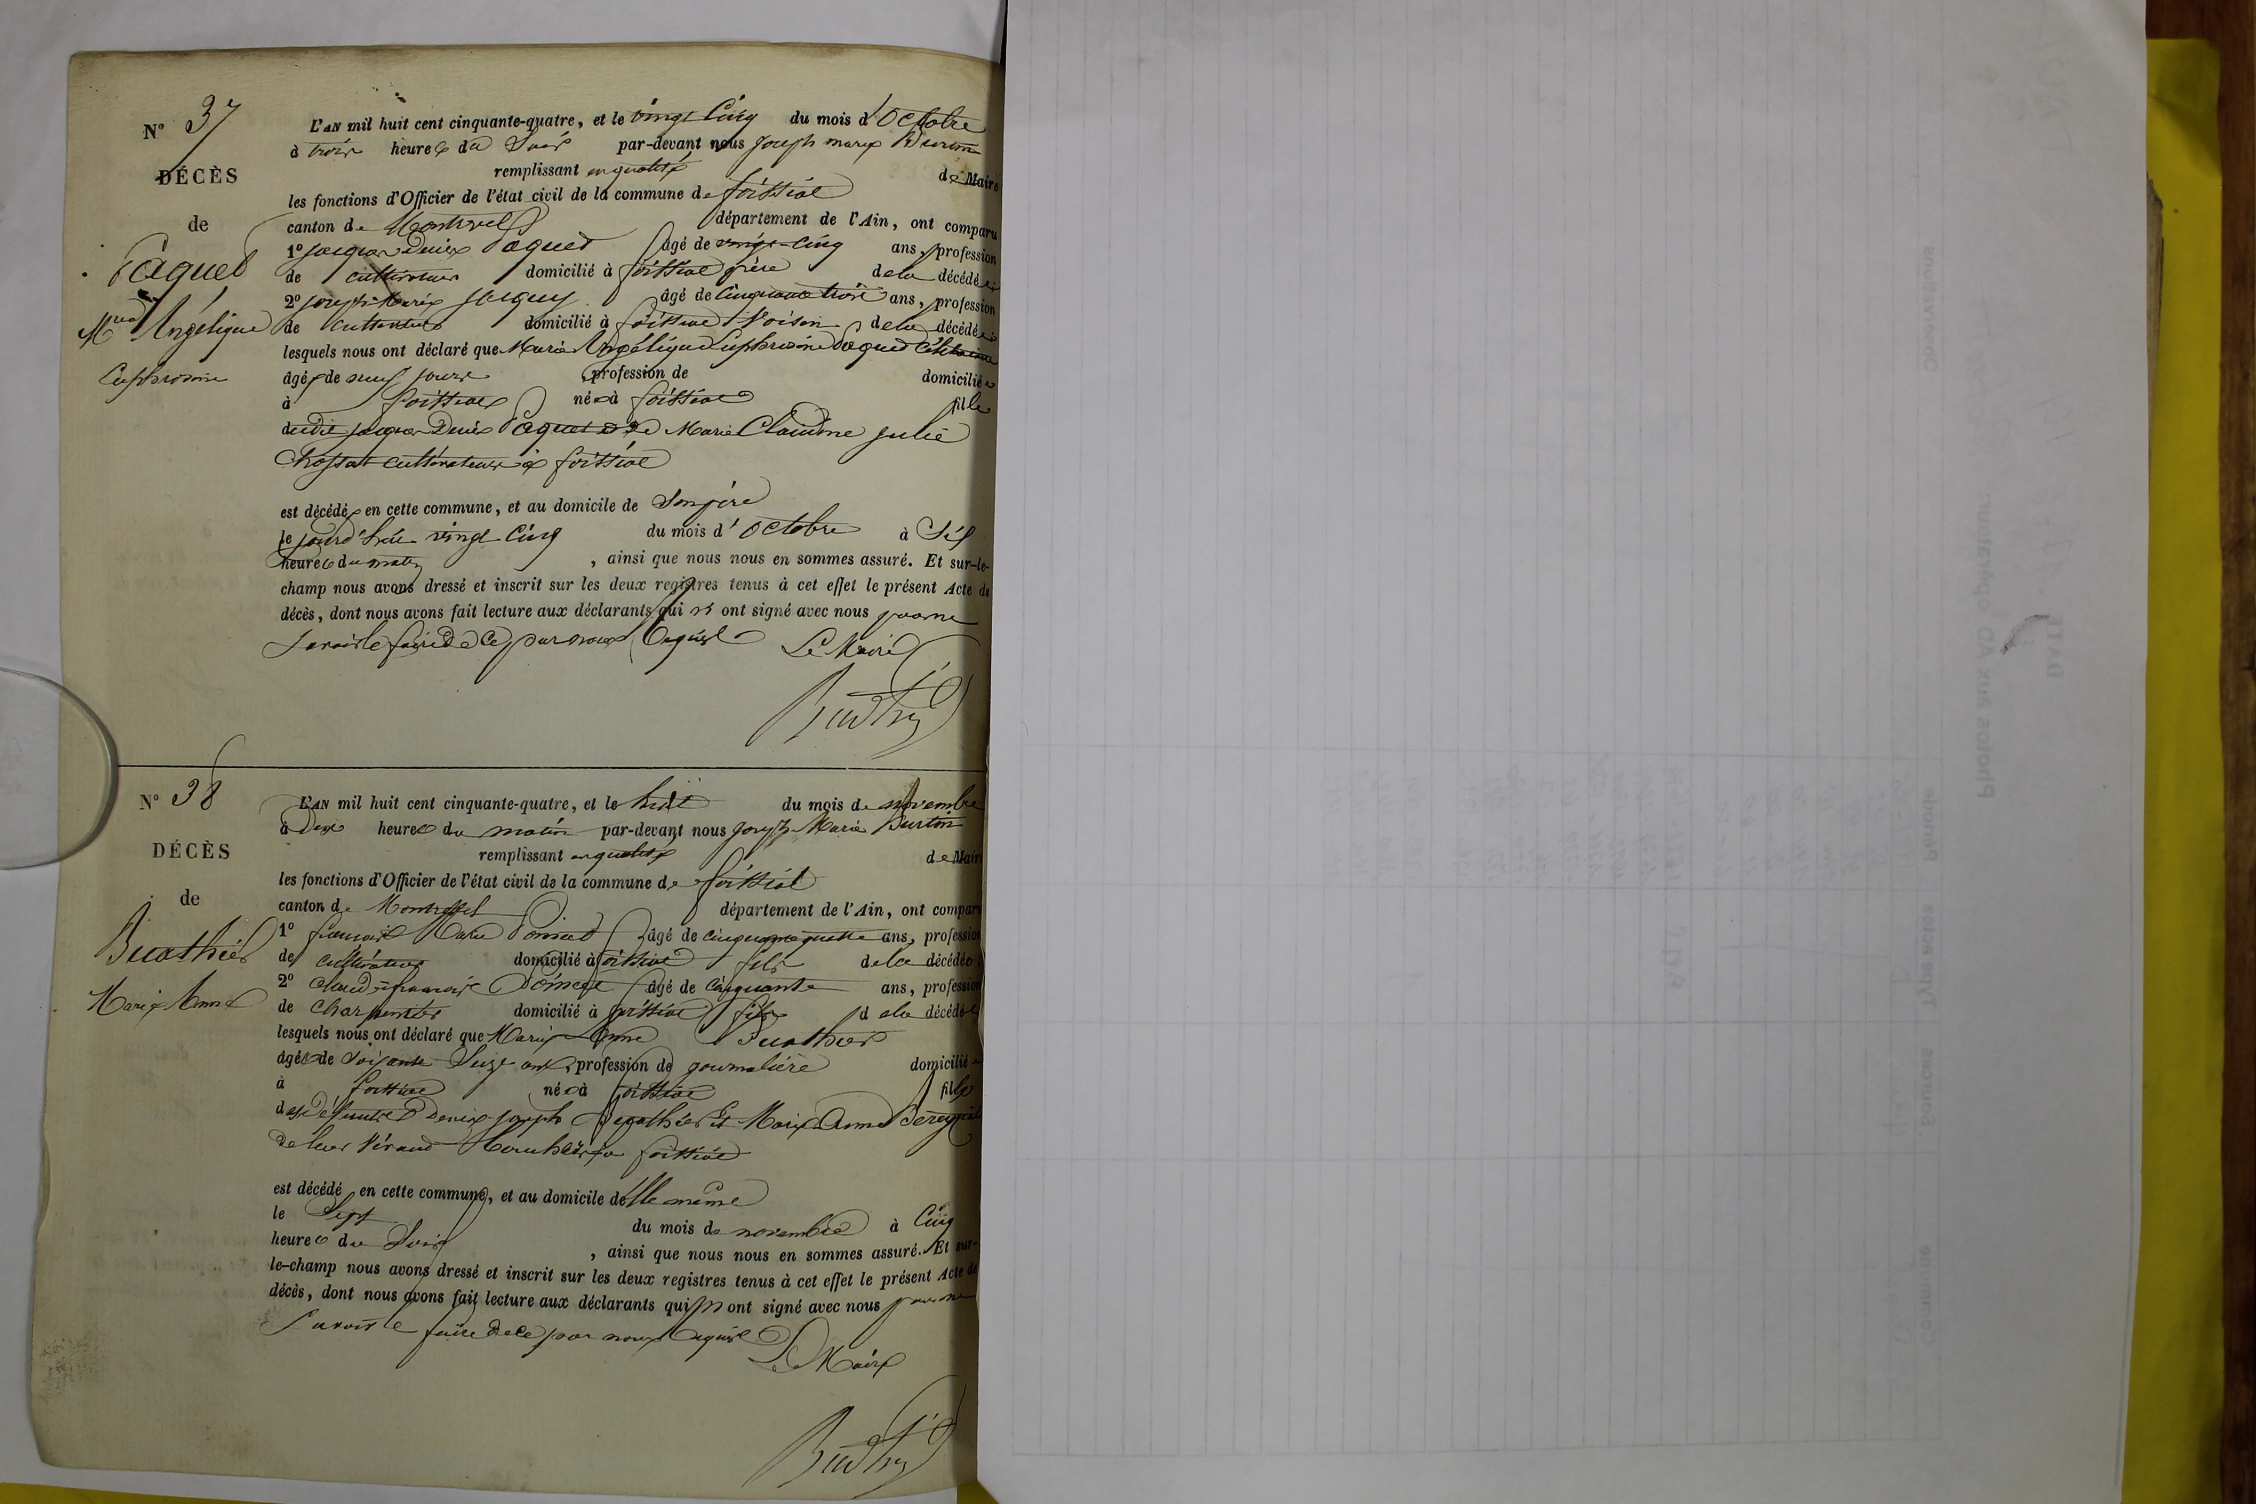 N° 37
DÉCÈS
de
Paquet
Marie Angélique
Euphrosine
L'AN mil huit cent cinquante-quatre, et le vingt Cinq du mois d'Octobre
à trois heures du Soir par-devant nous Joseph marie Burtin
remplissant en qualité de Maire
les fonctions d'Officier de l'état civil de la commune de foissiat
canton de Montrevel département de l'Ain, ont comparu
1° Jacques Denis Paquet âgé de vingt-Cinq ans, profession
de cultivateur domicilié à foissiat père de la décédée
2° joseph Marie âgé de Cinquante trois ans, profession
de cultivateur domicilié à foissiat Voisin de la décédée
lesquels nous ont déclaré que Marie Angélique Euphrosine Paquet Célibataire
âgée de neuf jours profession de domiciliée
à foissiat née à foissiat fille
dudit jacques Denis Paquet et de Marie Claudine julie
Chossat cultivateurs à foissiat
est décédée en cette commune, et au domicile de Son père
le jourd'hui vingt Cinq du mois d'Octobre à Six
heures du matin , ainsi que nous nous en sommes assuré. Et sur-le-
champ nous avons dressé et inscrit sur les deux registres tenus à cet effet le présent Acte de
décès, dont nous avons fait lecture aux déclarants qui n'ont signé avec nous pour ne
Savoir le faire de ce par nous Enquis Le Maire
Burtin
N° 38
DÉCÈS
de
Buathier
Marie Anne
L'AN mil huit cent cinquante-quatre, et le huit du mois de novembre
à Dix heures du matin par-devant nous Joseph Marie Burtin
remplissant en qualité de Maire
les fonctions d'Officier de l'état civil de la commune de foissiat
canton de Montrevel département de l'Ain, ont comparu
1° françois Marie âgé de cinquante quatre ans, profession
de cultivateur domicilié à foissiat fils de la décédée
2° Claude françois âgé de Cinquante ans, profession
de Charpentier domicilié à foissiat fils de la décédée
lesquels nous ont déclaré que Marie Anne Buathier
âgée de Soixante Seize ans profession de journalière domiciliée
à foissiat née à foissiat fille
des défunts Denis joseph Buathier Et Marie Anne
de leur Vivant foissiat
est décédée en cette commune, et au domicile d'Elle même
le Sept du mois de novembre à Cinq
heures du Soir , ainsi que nous nous en sommes assuré. Et sur-
le-champ nous avons dressé et inscrit sur les deux registres tenus à cet effet le présent Acte de
décès, dont nous avons fait lecture aux déclarants qui n'ont signé avec nous pour ne
Savoir le faire de ce par nous Enquis
Le Maire
Burtin